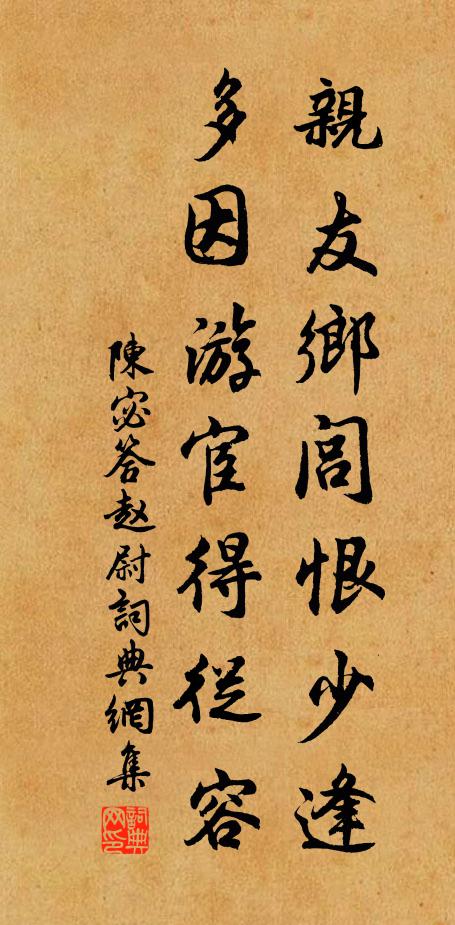 親友鄉閭恨少逢
多因游宦得從容
陳宓答赵尉詞典網集
詞典网印